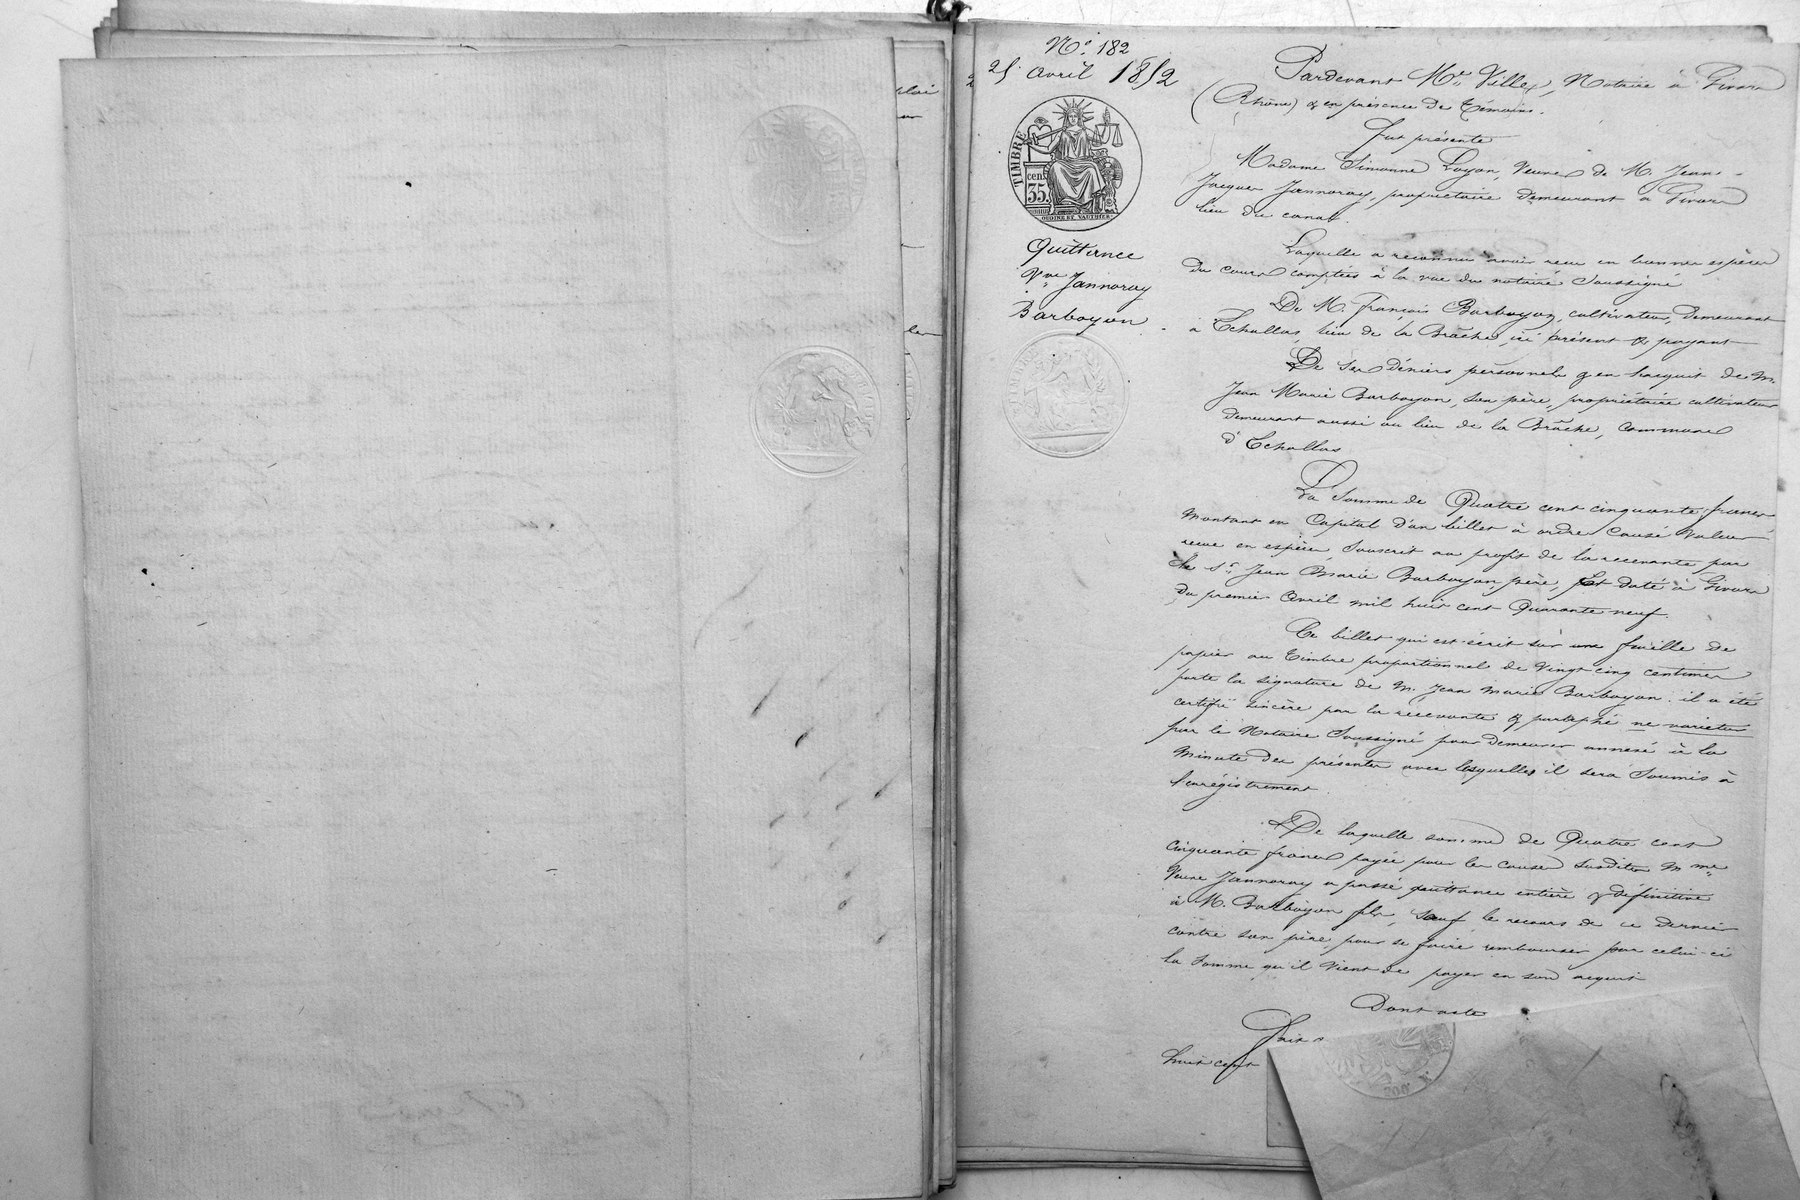 N.° 182
25 avril 1852
TIMBRE
cen.
35.
OUDINE ET VAUTHIER
Quittance
Vve Jannoray
Barboyon
Pardevant Me Ville, Notaire à Givors
(Rhône) & en présence de Témoins.
Fut présente
Madame Simonne Loyon, Veuve de M. Jean-
Jacques Jannoray, propriétaire demeurant à Givors
lieu du canal.
Laquelle a reconnu avoir reçu en bonnes espèces
du cours comptées à la vue du notaire soussigné
De M. François Barboyon, cultivateur, demeurant
à Echallas, lieu de la Brâche, ici présent & payant
De ses déniers personnels & en l'acquit de M.
Jean Marie Barboyon, son père, propriétaire cultivateur
demeurant aussi au lieu de la Brâche, commune
d'Echallas
La somme de Quatre cent cinquante francs
montant en Capital d'un billet à ordre causé valeur
reçue en espèces, souscrit au profit de la recevante par
le sr. Jean Marie Barboyon, père, et daté à Givors
du premier avril mil huit cent quarante neuf.
Ce billet qui est écrit sur une feuille de
papier au timbre proportionnel de vingt cinq centimes
porte la signature de M. Jean Marie Barboyon. il a été
certifié sincère par la recevante & paraphé ne varietur
par le Notaire soussigné pour demeurer annexé à la
minute des présentes avec lesquelles il sera soumis à
l'enrégistrement.
De laquelle somme de Quatre cent
cinquante francs payée pour les causes susdites Mme
Veuve Jannoray a passé quittance entière & définitive
à M. Barboyon fils, sauf le recours de ce dernier
contre son père, pour se faire rembourser par celui-ci
la somme qu'il vient de payer en son acquit
Dont acte
Fait à
huit cent